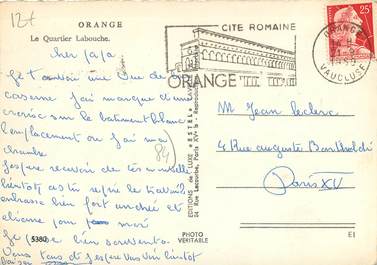 12€
ORANGE
Le Quartier Labouche.
Cher papa
Je t'envoie une vue de la
caserne j'ai marqué d'une
croix sur le bâtiment blanc
l'emplacement ou j'ai ma
chambre
J'espère recevoir de tes nouvelles
bientôt as tu repris le travail
embrasse bien fort
pour moi
Je pense bien souvent a
Vous tous et j'espère vous voir bientôt
Baiser
(84)
5380
PHOTO
VERITABLE
EDITIONS de LUXE «ESTEL»
24 Rue Lacourbe, Paris XVe - Reproduction
CITE ROMAINE
ORANGE
ORANGE
VAUCLUSE
25F
M Jean Leclerc
4 Rue auguste Bartholdi
Paris XV
E1